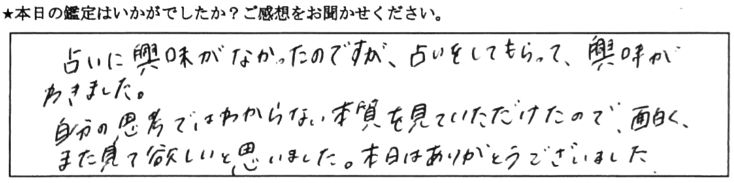 ★本日の鑑定はいかがでしたか？ご感想をお聞かせください。
占いに興味がなかったのですが、占いをしてもらって、興味が
わきました。
自分の思考ではわからない本質を見ていただけたので、面白く、
また見て欲しいと思いました。本日はありがとうございました